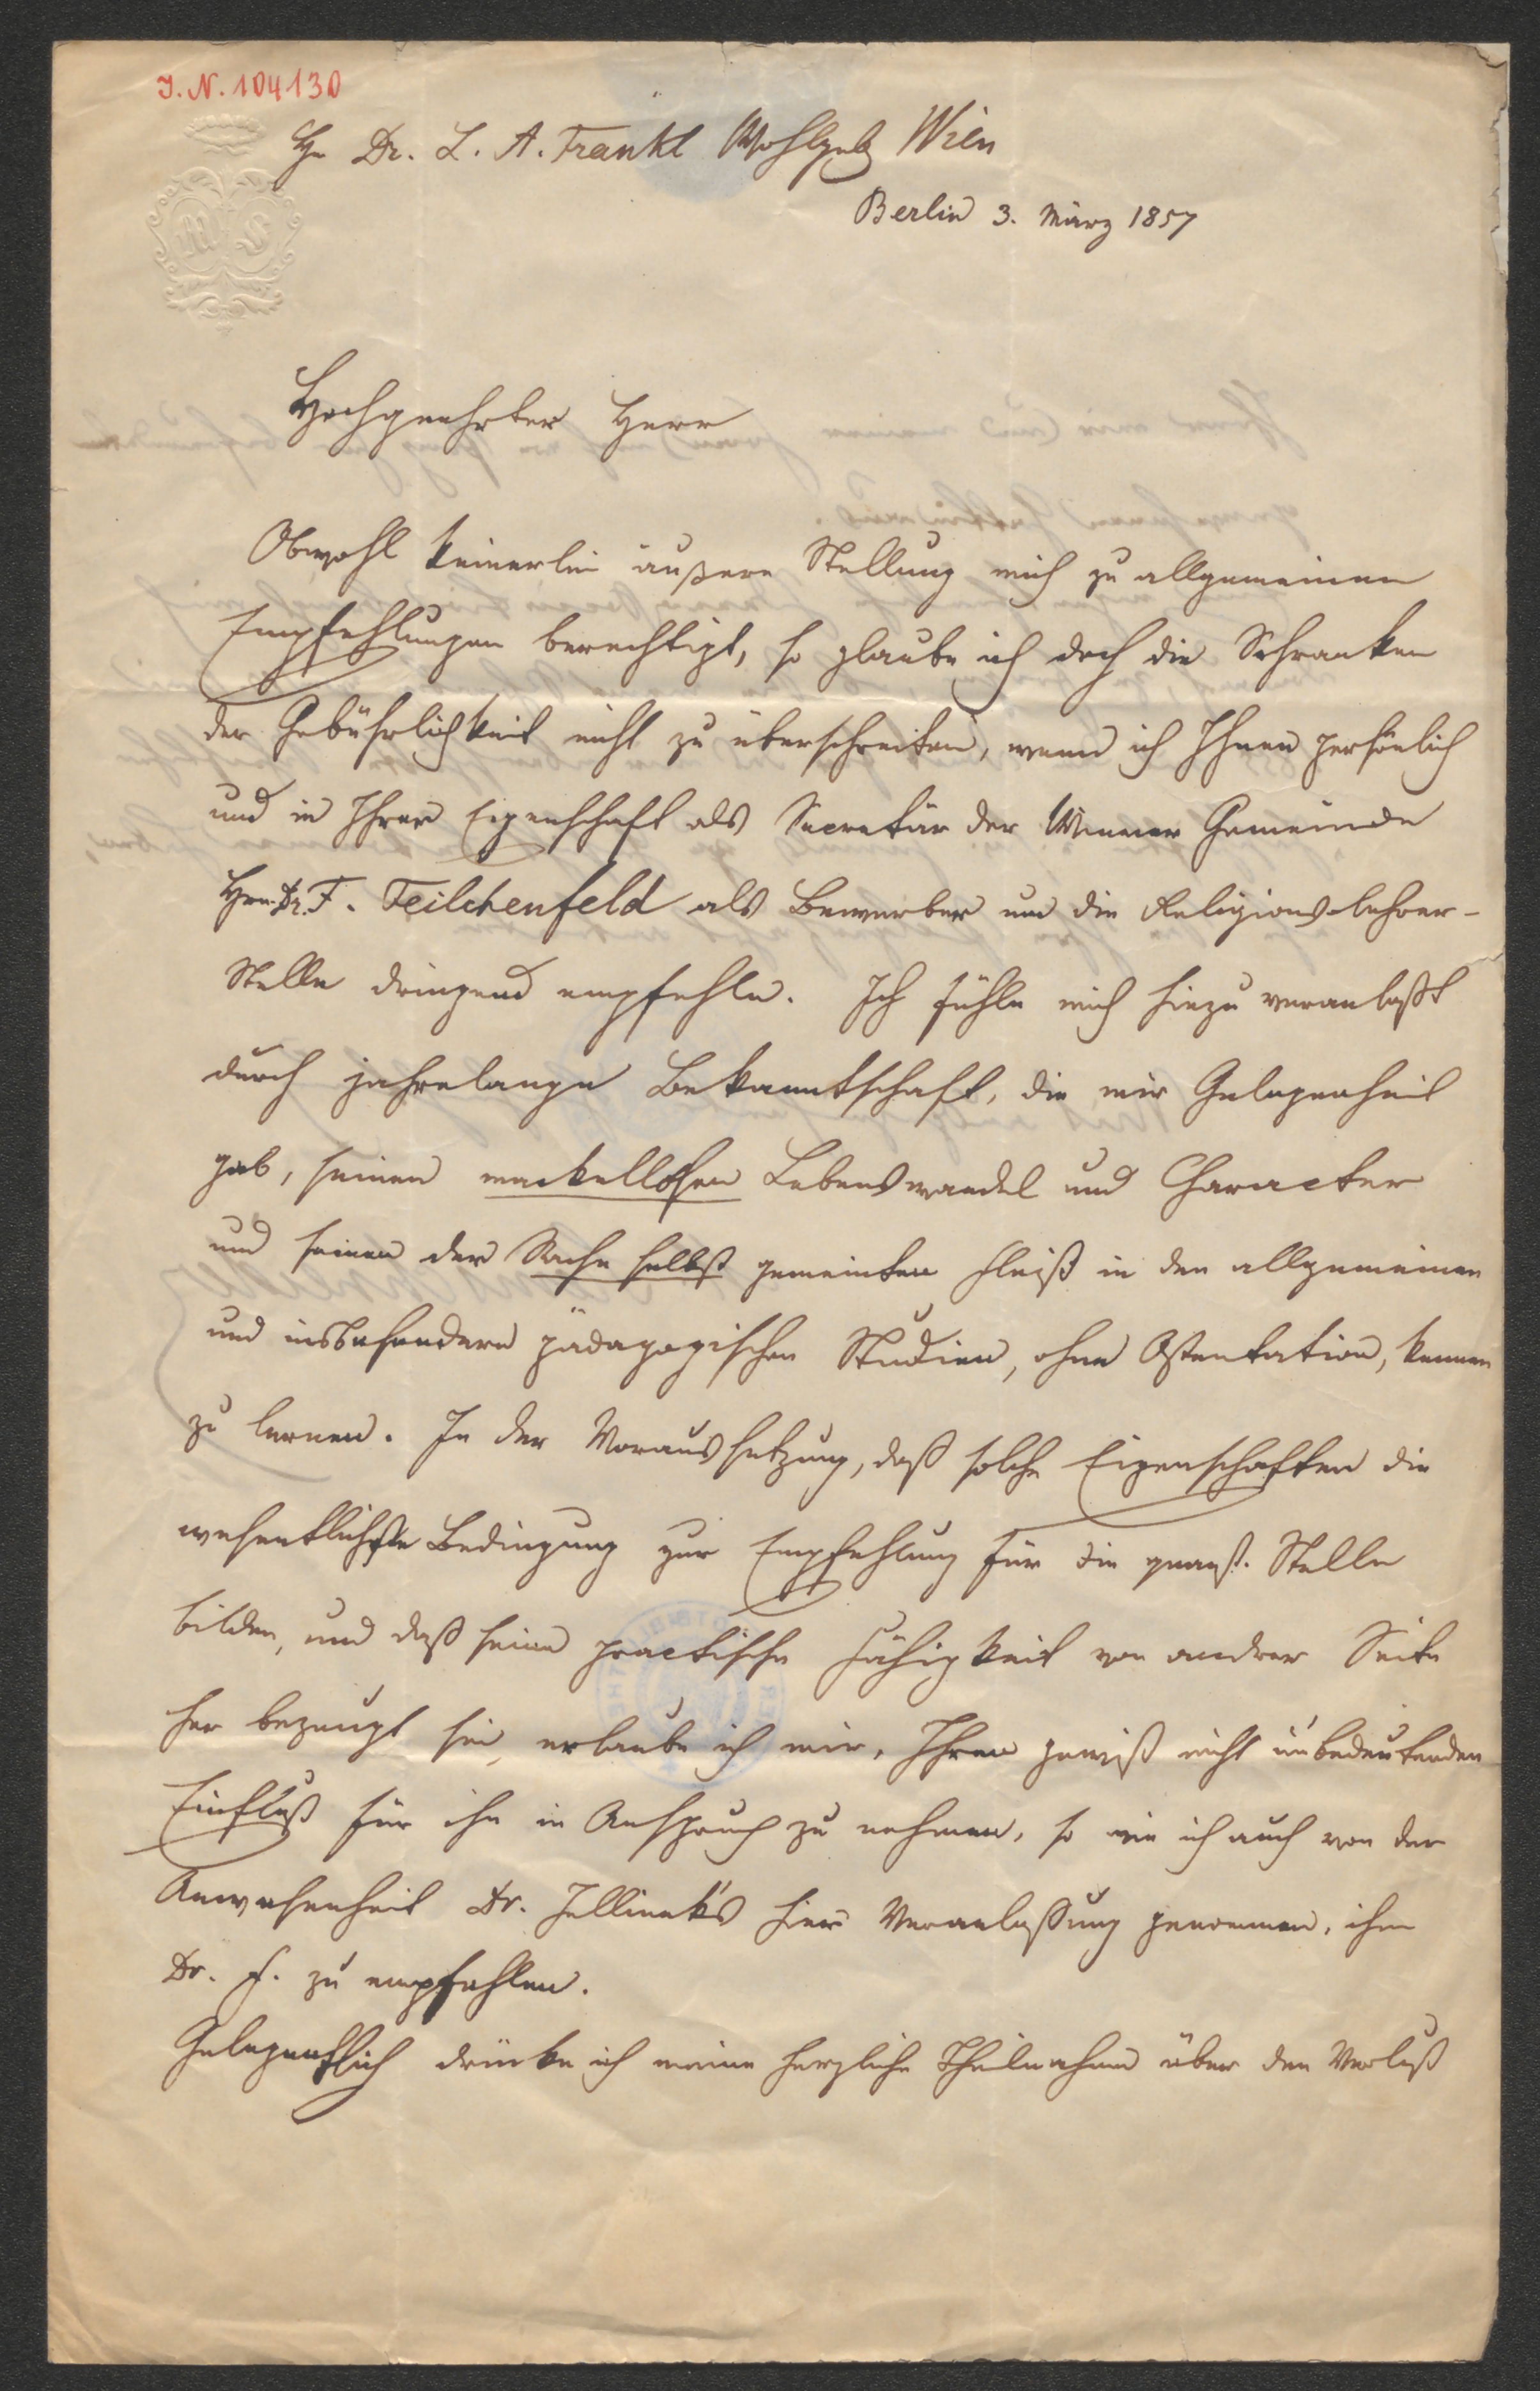 J.N. 104130
Hr Dr. L. A. Frankl Wohlgeb Wien
Berlin 3. März 1857
Hochgeehrter Herr
Obwohl keinerlei äußere Stellung mich zu allgemeinen
Empfehlungen berechtigt, so glaube ich doch die Schranken
der Gebührlichkeit nicht zu überschreiten, wenn ich Ihnen persönlich
und in Ihrer Eigenschaft als Secretär der Wiener Gemeinde
Hrn. Dr. F. Feilchenfeld als Bewerber um die Religions-lehrer-
Stelle dringend empfehle. Ich fühle mich hiezu veranlaßt
durch jahrelange Bekanntschaft, die mir Gelegenheit
gab, seinen mackellosen Lebenswandel und Character
und seinen der Sache selbst gemeinten Fleiß in den allgemeinen
und insbesondere pädagogischen Studien, ohne Ostentation, kennen
zu lernen. In der Voraussetzung, daß solche Eigenschaften die
wesentlichste Bedingung zur Empfehlung für die Stelle
bilden, und daß seine practische Fähigkeit von andrer Seite
her bezeugt sei, erlaube ich mir, Ihren gewiß nicht unbedeutenden
Einfluß für ihn in Anspruch zu nehmen, so wie ich auch von der
Anwesenheit Dr. Jellinek's hier Veranlassung genommen, ihm
Dr. F. zu empfehlen.
Gelegentlich drücke ich meine herzliche Theilnahme über den Verlust